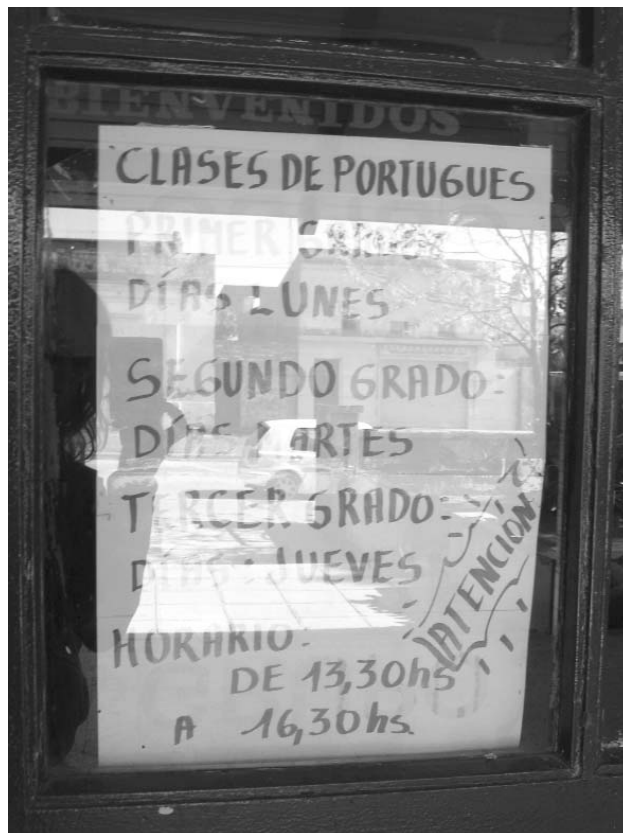 BIENVENIDOS
CLASES DE PORTUGUES
PRIMER GRADO:
DÍAS LUNES
SEGUNDO GRADO:
DÍAS MARTES
TERCER GRADO:
DÍAS: JUEVES
¡ATENCIÓN!
HORARIO:
DE 13,30hs
A 16,30hs.